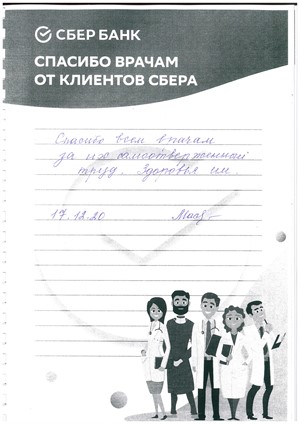 СБЕР БАНК
СПАСИБО ВРАЧАМ
ОТ КЛИЕНТОВ СБЕРА
Спасибо всем врачам
за их самоотверженный
труд. Здоровья им.
17.12.20